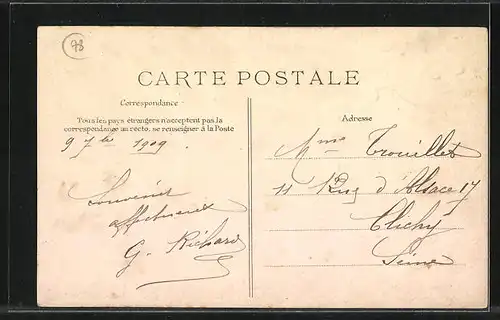 78
CARTE POSTALE
Correspondance
Tous les pays étrangers n'acceptent pas la
correspondance au recto, se renseigner à la Poste
9 7bre 1909
Souvenir
affectueux
G. Richard
Adresse
Mme Trouillet
11 Rue d'Alsace 17
Clichy
Seine